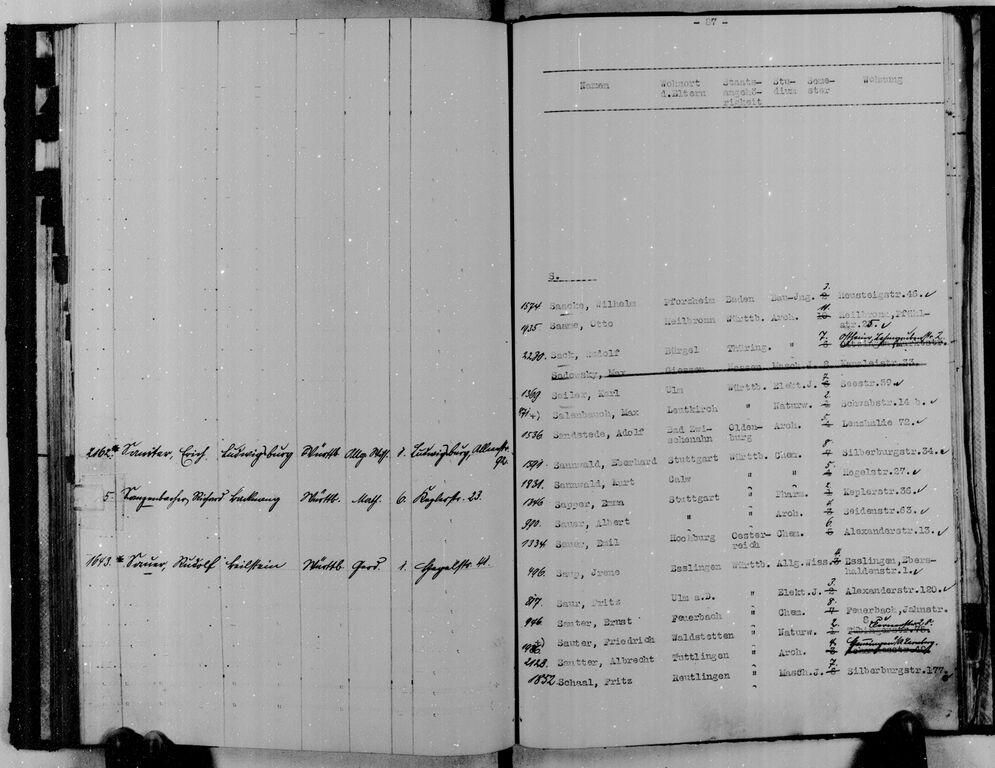 2162.* Sauter, Erich Ludwigsburg Württb. Allg. Wiss. 1. Ludwigsburg, Alleenstr.
92.
5. Richard Backnang Württb. Math. 6. Keplerstr. 23.
1043.* Sauer, Rudolf Beilstein Württb. 1. Hegelstr. 41.
- 87 -
Namen Wohnort Staats- Stu- Seme- Wohnung
d.Eltern angehö- dium ster
rigkeit
S.
1574 Saacke, Wilhelm Pforzheim Baden Bau-Jng. 3. Neusteigstr.46.
1435 Saame, Otto Heilbronn Württb. Arch. Heilbronn, Pfühl-
str.25.
2230. Sack, Rudolf Bürgel Thüring. " 7.
Sadowsky, Max Giessen Hessen Masch.J. 2 Kanzleistr.33.
1369 Sailer, Karl Ulm Württb. Elekt.J. 7. Seestr.39
Salenbauch, Max Leutkirch " Naturw. 2. Schwabstr.14 b.
1536 Sandstede, Adolf Bad Zwi- Olden- Arch. Lenzhalde 72.
schenahn burg
Sannwald, Eberhard Stuttgart Württb. Chem. 8. Silberburgstr.34.
1831. Sannwald, Kurt Calw " " Hegelstr.27.
1346 Sapper, Emma Stuttgart " Pharm. Keplerstr.36.
990. Sauer, Albert " " Arch. Seidenstr.63.
1334 Sauer, Emil Hochburg Oester- Chem. 6. Alexanderstr.13.
reich
496. Saup, Irene Esslingen Württb. Allg.Wiss. Esslingen, Ebers-
haldenstr.1.
817. Saur, Fritz Ulm a.D. " Elekt.J. 3. Alexanderstr.120.
946 Sauter, Ernst Feuerbach " Chem. 8. Feuerbach, Jahnstr.
8
Sauter, Friedrich Waldstetten " Naturw. 2.
2128. Sautter, Albrecht Tuttlingen " Arch.
1852 Schaal, Fritz Reutlingen " Masch.J. 7. Silberburgstr.177.